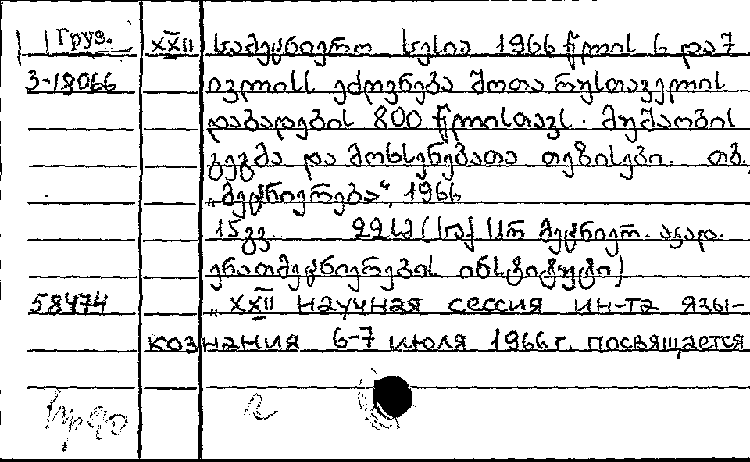 Груз. XXII სამეცნიერო სესია 1966 წლის 6 და 7
3-18066 ივლისს ეძღვნება შოთა რუსთაველის
დაბადების 800 წლისთავს. მუშაობის
გეგმა და მოხსენებათა თეზისები. თბ.
„მეცნიერება", 1966
15გვ. 22სმ (საქ სსრ მეცნიერ. აკად.
ენათმეცნიერების ინსტიტუტი)
58474 „XXII научная сессия ин-та язы-
кознания 6-7 июля 1966г. посвящается